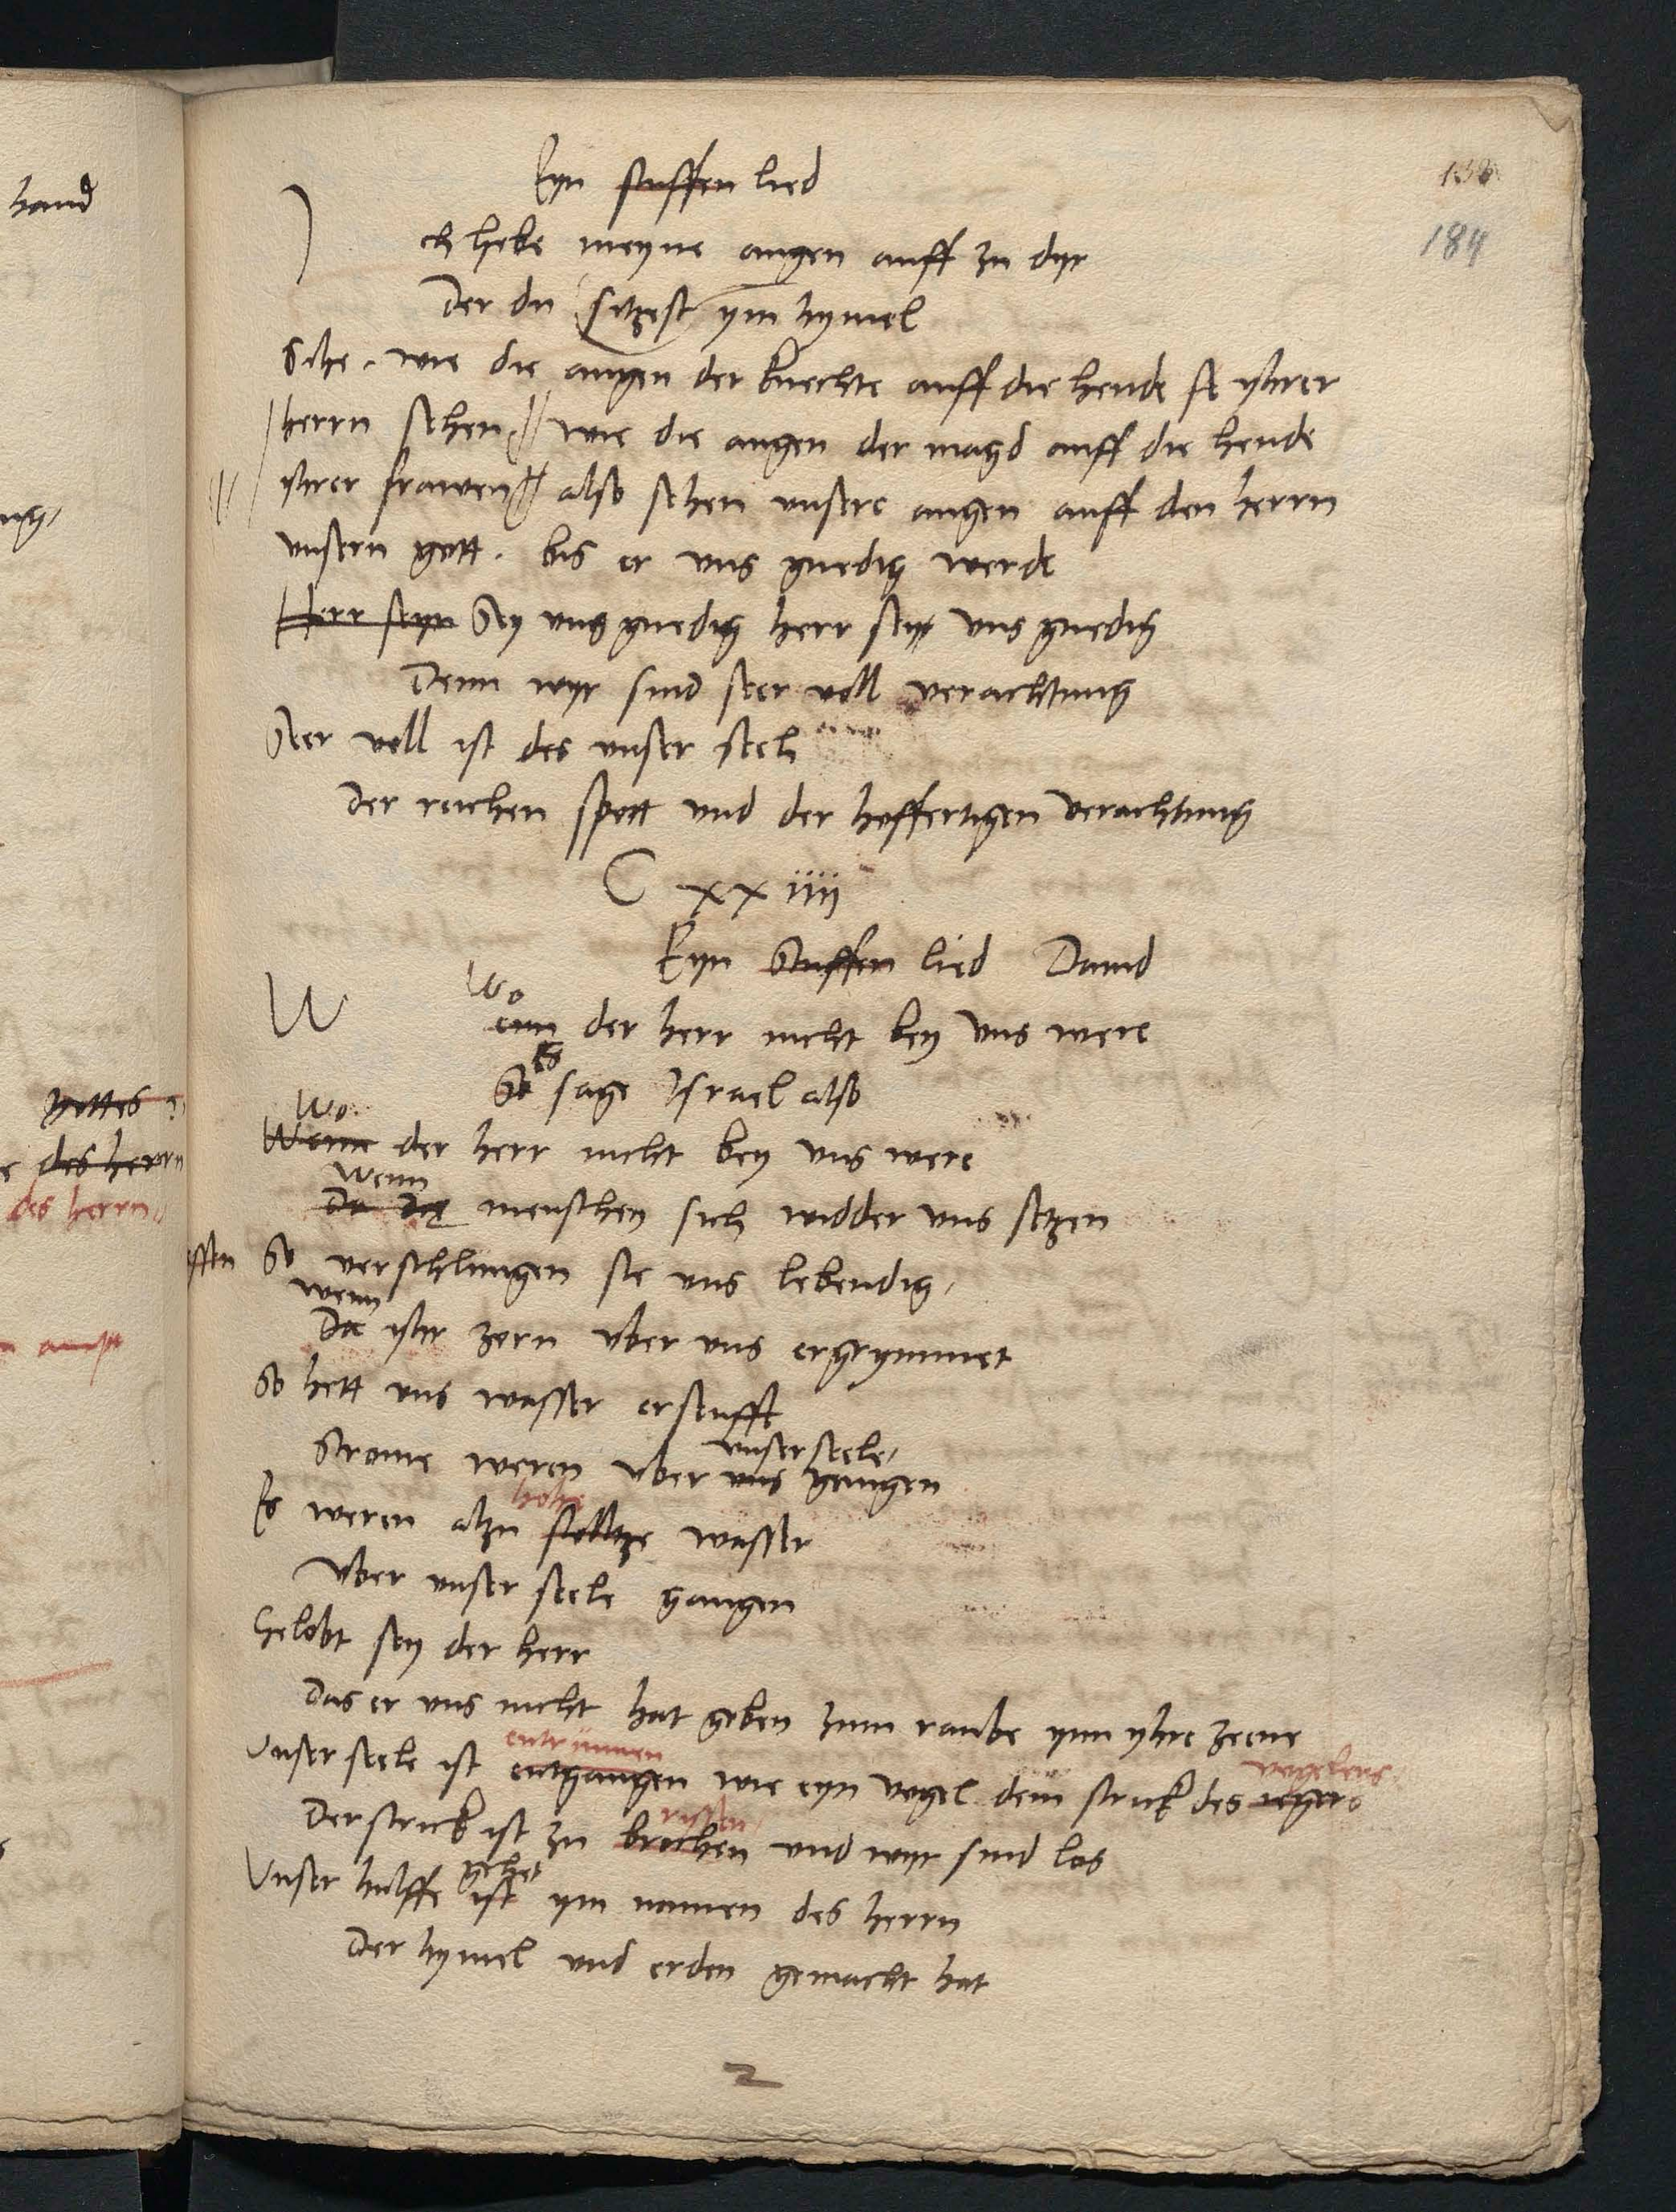 hand
ng,
gottes
e des herrn
des herrn
ssen
n ampt
138
184
Eyn stuffen lied
J ch hebe meyne augen auff zu dyr
Der du sitzest ym hymel
Sihe. wie die augen der knechte auff die hende yhrer
herrn sehen wie die augen der magd auff die hende
yhrer frawen also sehen unsere augen auff den herrn
unsern gott. bis er uns gnedig werde
Herr seyn Sey uns gnedig herr sey uns gnedig
Denn wyr sind seer voll verachtung
Seer voll ist des unser seel
Der reichen spott und der hoffertigen verachtung
C xx iiij
Eyn Stuffen lied Dauid
Wo
W enn der herr nicht bey uns were
Es
So sage Israel also
Wo
Wenn der herr nicht bey uns were
Wenn
Da die menschen sich widder uns setzen
So verschlungen sie uns lebendig,
wenn
Da yhr zorn uber uns ergrymmet
So hett uns wasser erseufft
unser seele,
Strome weren uber uns gangen
hohe
Es weren alzu stoltze wasser
Uber unser seele gangen
Gelobt sey der herr
Das er uns nicht hat geben zum raube ynn yhre zeene
entrunnen
vogelers
Unser seele ist entgangen wie eyn vogel dem strick des iegers
rissen
Der strick ist zu brochen und wyr sind los
gehet
Unser hulffe ist ym namen des herrn
Der hymel und erden gemacht hat